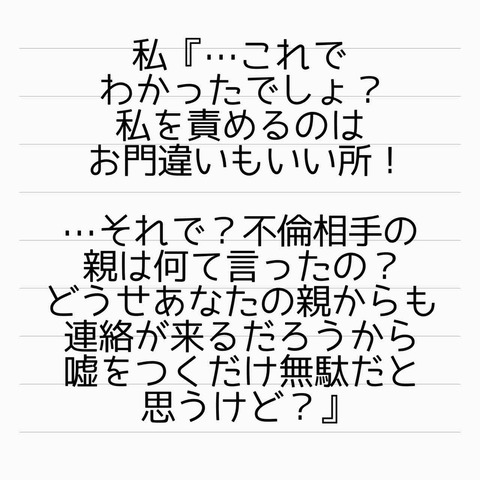 私『…これで
わかったでしょ？
私を責めるのは
お門違いもいい所！
…それで？不倫相手の
親は何て言ったの？
どうせあなたの親からも
連絡が来るだろうから
嘘をつくだけ無駄だと
思うけど？』